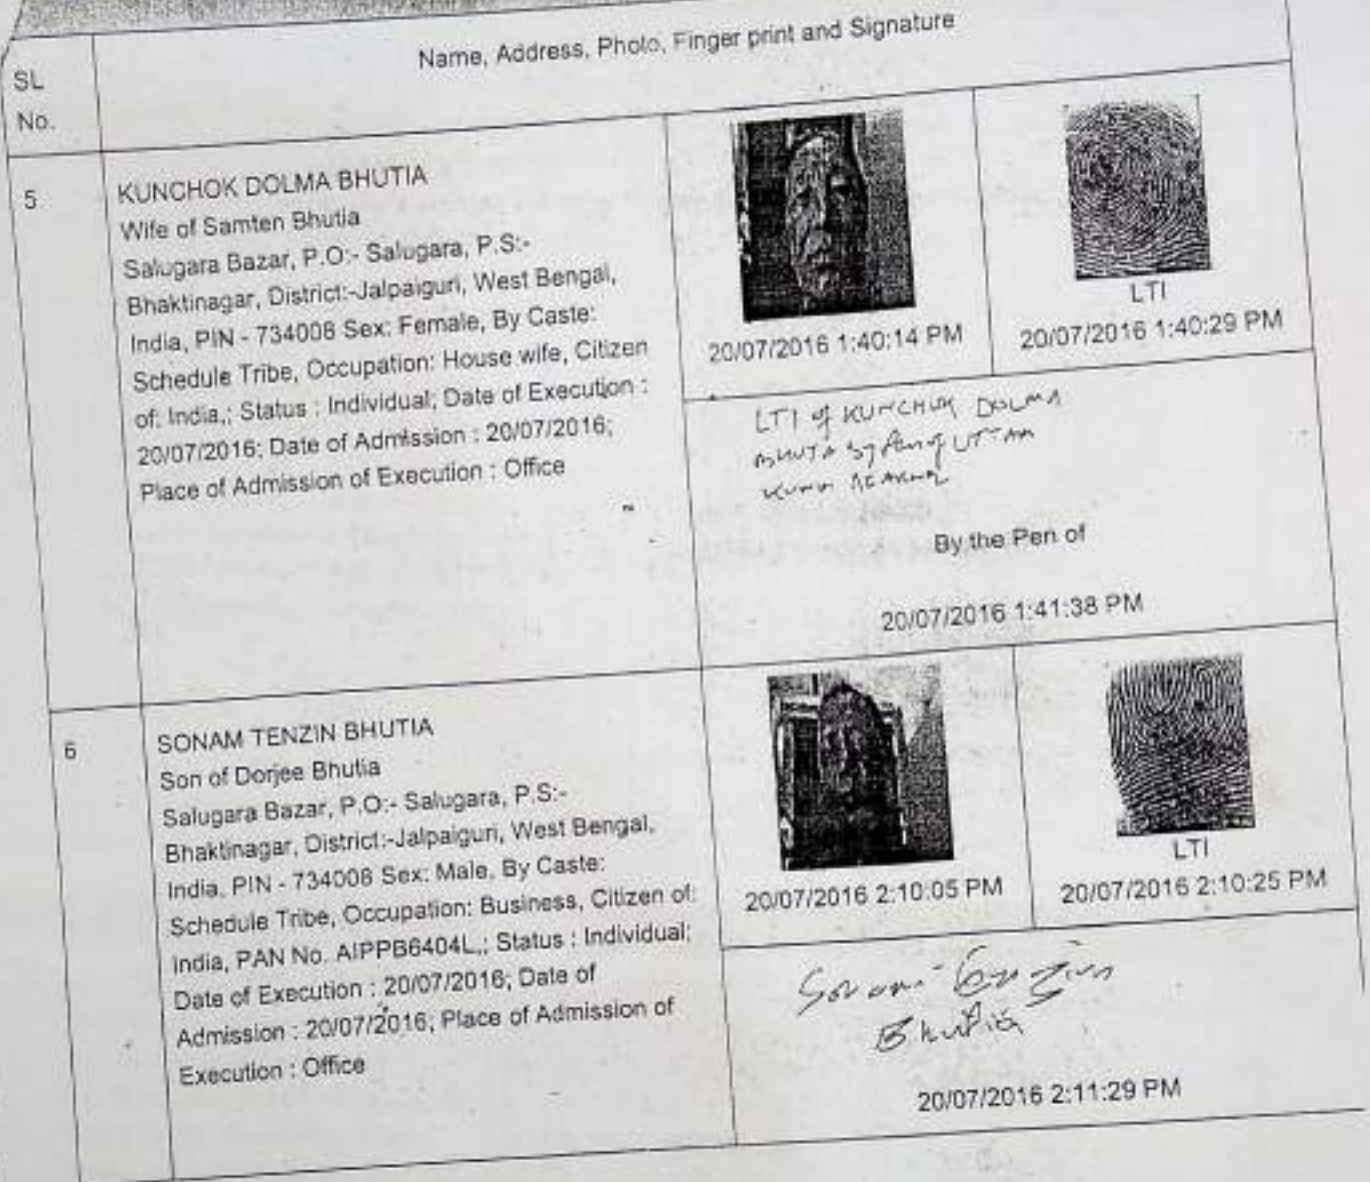 SL
No.
Name, Address, Photo, Finger print and Signature
5
KUNCHOK DOLMA BHUTIA
Wife of Samten Bhutia
Salugara Bazar, P.O:- Salugara, P.S:-
Bhaktinagar, District:-Jalpaiguri, West Bengal,
India, PIN - 734008 Sex: Female, By Caste:
Schedule Tribe, Occupation: House wife, Citizen
of: India,; Status : Individual; Date of Execution :
20/07/2016; Date of Admission : 20/07/2016;
Place of Admission of Execution : Office
20/07/2016 1:40:14 PM
LTI
20/07/2016 1:40:29 PM
LTI of KUNCHOK DOLMA
BHUTIA by Pen of UTTAM
By the Pen of
20/07/2016 1:41:38 PM
6
SONAM TENZIN BHUTIA
Son of Dorjee Bhutia
Salugara Bazar, P.O:- Salugara, P.S:-
Bhaktinagar, District:-Jalpaiguri, West Bengal,
India, PIN - 734008 Sex: Male, By Caste:
Schedule Tribe, Occupation: Business, Citizen of:
India, PAN No. AIPPB6404L,; Status : Individual;
Date of Execution : 20/07/2016; Date of
Admission : 20/07/2016; Place of Admission of
Execution : Office
20/07/2016 2:10:05 PM
LTI
20/07/2016 2:10:25 PM
Sonam Tenzin
Bhutia
20/07/2016 2:11:29 PM